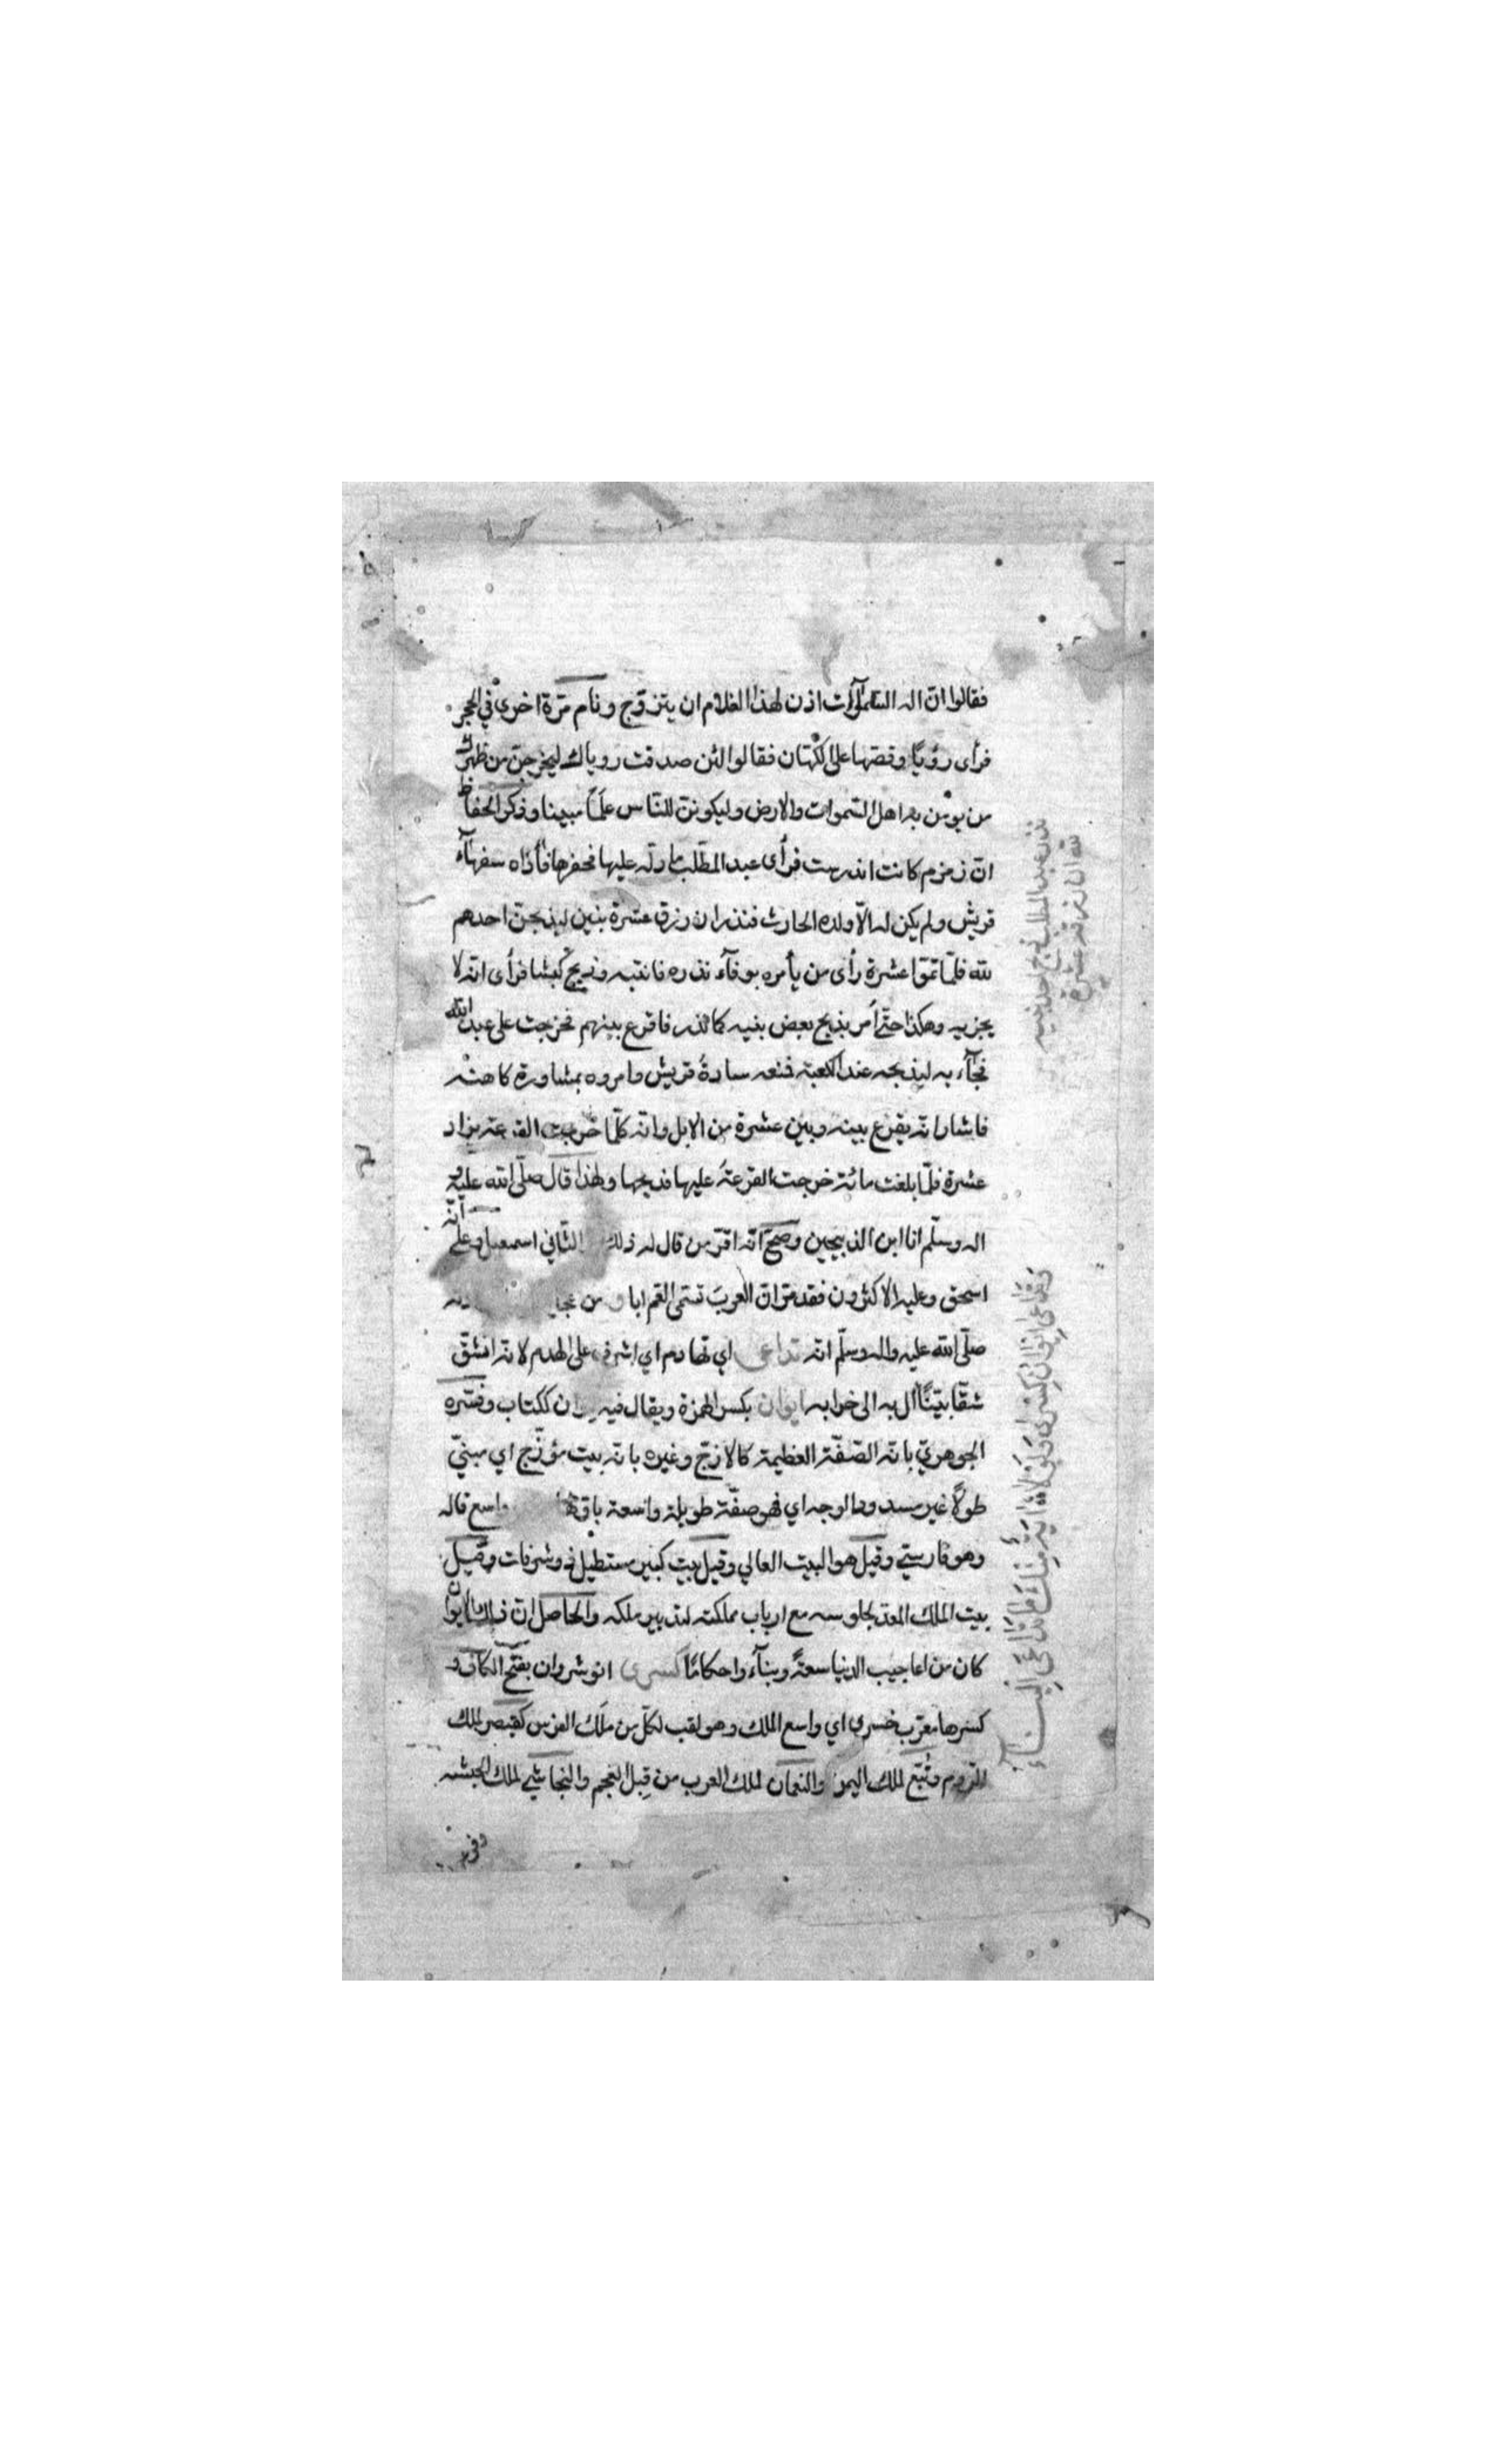 فقالوا ان اله السموات اذن لهذا الغلام ان يتزوج ونام مرة اخرى في الحجر
فرأى رؤيا وقصها على الكهان فقالوا لئن صدقت روياك ليخرجن من ظهرك
من يومن به اهل السموات والارض وليكونن للناس علما مبينا وذكر الحفاظ
ان زمزم كانت اندرست فرأى عبد المطلب ما دله عليها فحفرها فأذاه سفهآء
قريش ولم يكن له الا ولده الحارث فنذر ان رزق عشرة بنين ليذبحن احدهم
لله فلما تموا عشرة رأى من يأمره بوفآء نذره فانتبه وذبح كبشا فرأى انه لا
يجزيه وهكذا حتى أمر بذبح بعض بنيه كما نذر فاقرع بينهم فخرجت على عبد الله
فجآء به ليذبحه عند الكعبة فمنعه سادة قريش وامروه بمشاورة كاهنة
فاشار انه يقرع بينه وبين عشرة من الابل وانه كلما خرجت القرعة يزاد
عشرة فلما بلغت مائة خرجت القرعة عليها فذبحها ولهذا قال صلى الله عليه و
اله وسلم انا ابن الذبيحين وصح انه اقر من قال له ذلك الثاني اسمعيل وعلى انه
اسحق وعليه الاكثرون فقد مر ان العرب تسمى العم ابا و من
صلى الله عليه واله وسلم انه تداعى اي تهادم اي اشرف على الهدم لانه انشق
شقا بينا أل به الى خرابه ايوان بكسر الهمزة ويقال فيه ككتاب وفسره
الجوهري بانه الصفة العظيمة كالازج وغيره بانه بيت مؤزج اي مبني
طولا غير مسدود الوجه اي فهو صفة طويلة واسعة واسع قاله
وهو فارسي وقيل هو البيت العالي وقيل بيت كبير مستطيل ذو شرفات وقيل
بيت الملك المعد لجلوسه مع ارباب مملكته لتدبير ملكه والحاصل ان ذلك الايوان
كان من اعاجيب الدنيا سعة وبنآء واحكاما كسرى انوشروان بفتح الكاف و
كسرها معرب خسرى اي واسع الملك وهو لقب لكل من ملك الفرس كقيصر لملك
الروم وتبع لملك اليمن والنعمان لملك العرب من قبل العجم والنجاشي لملك الحبشة
نذر عبد المطلب ذبح احد بنيه
لله ان رزقه عشرة
وتداعى ايوان كسرى ولولا اية منك ما تداعى البنآء